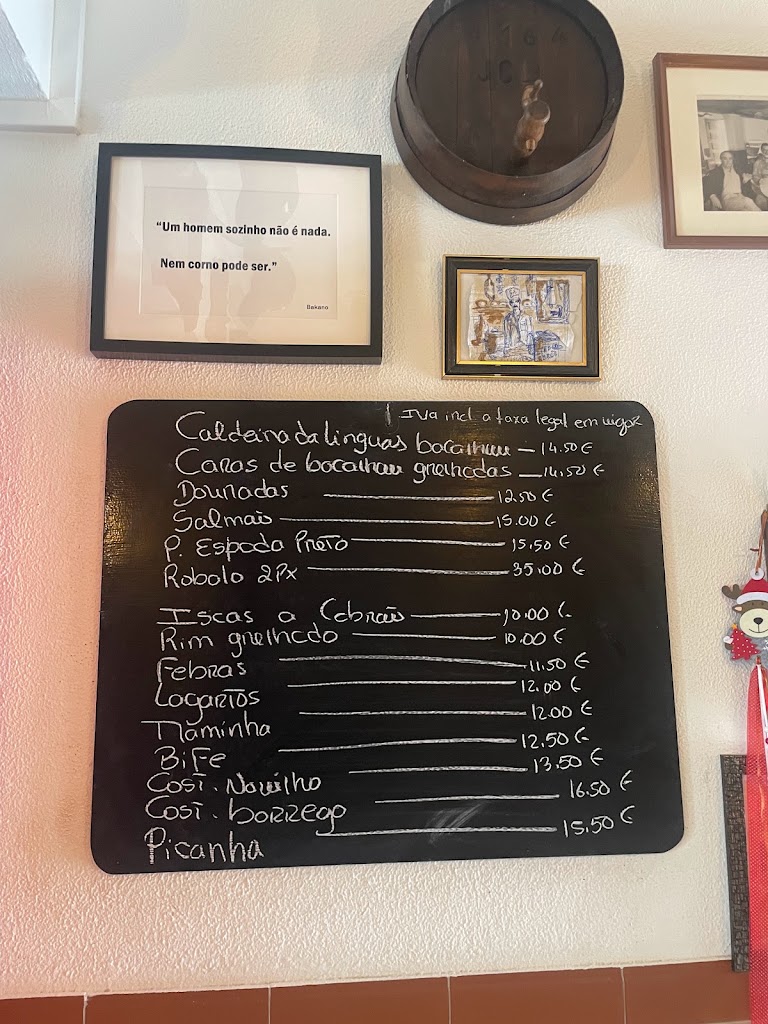 164
JCD
"Um homem sozinho não é nada.
Nem corno pode ser."
Bakano
IVa incl a taxa legal em vigor
Caldeirada linguas bacalhau — 14.50 €
Caras de bacalhau grelhadas — 14,50 €
Douradas — 12.50 €
Salmão — 15.00 €
P. Espada Preto — 15,50 €
Robalo 2Px — 35,00 €
Iscas a Cebrais — 10.00 €
Rim grelhado — 10.00 €
Febras — 11.50 €
Lagartos — 12.00 €
Maminha — 12.00 €
Bife — 12.50 €
Cost. Novilho — 13.50 €
Cost. borrego — 16.50 €
Picanha — 15.50 €